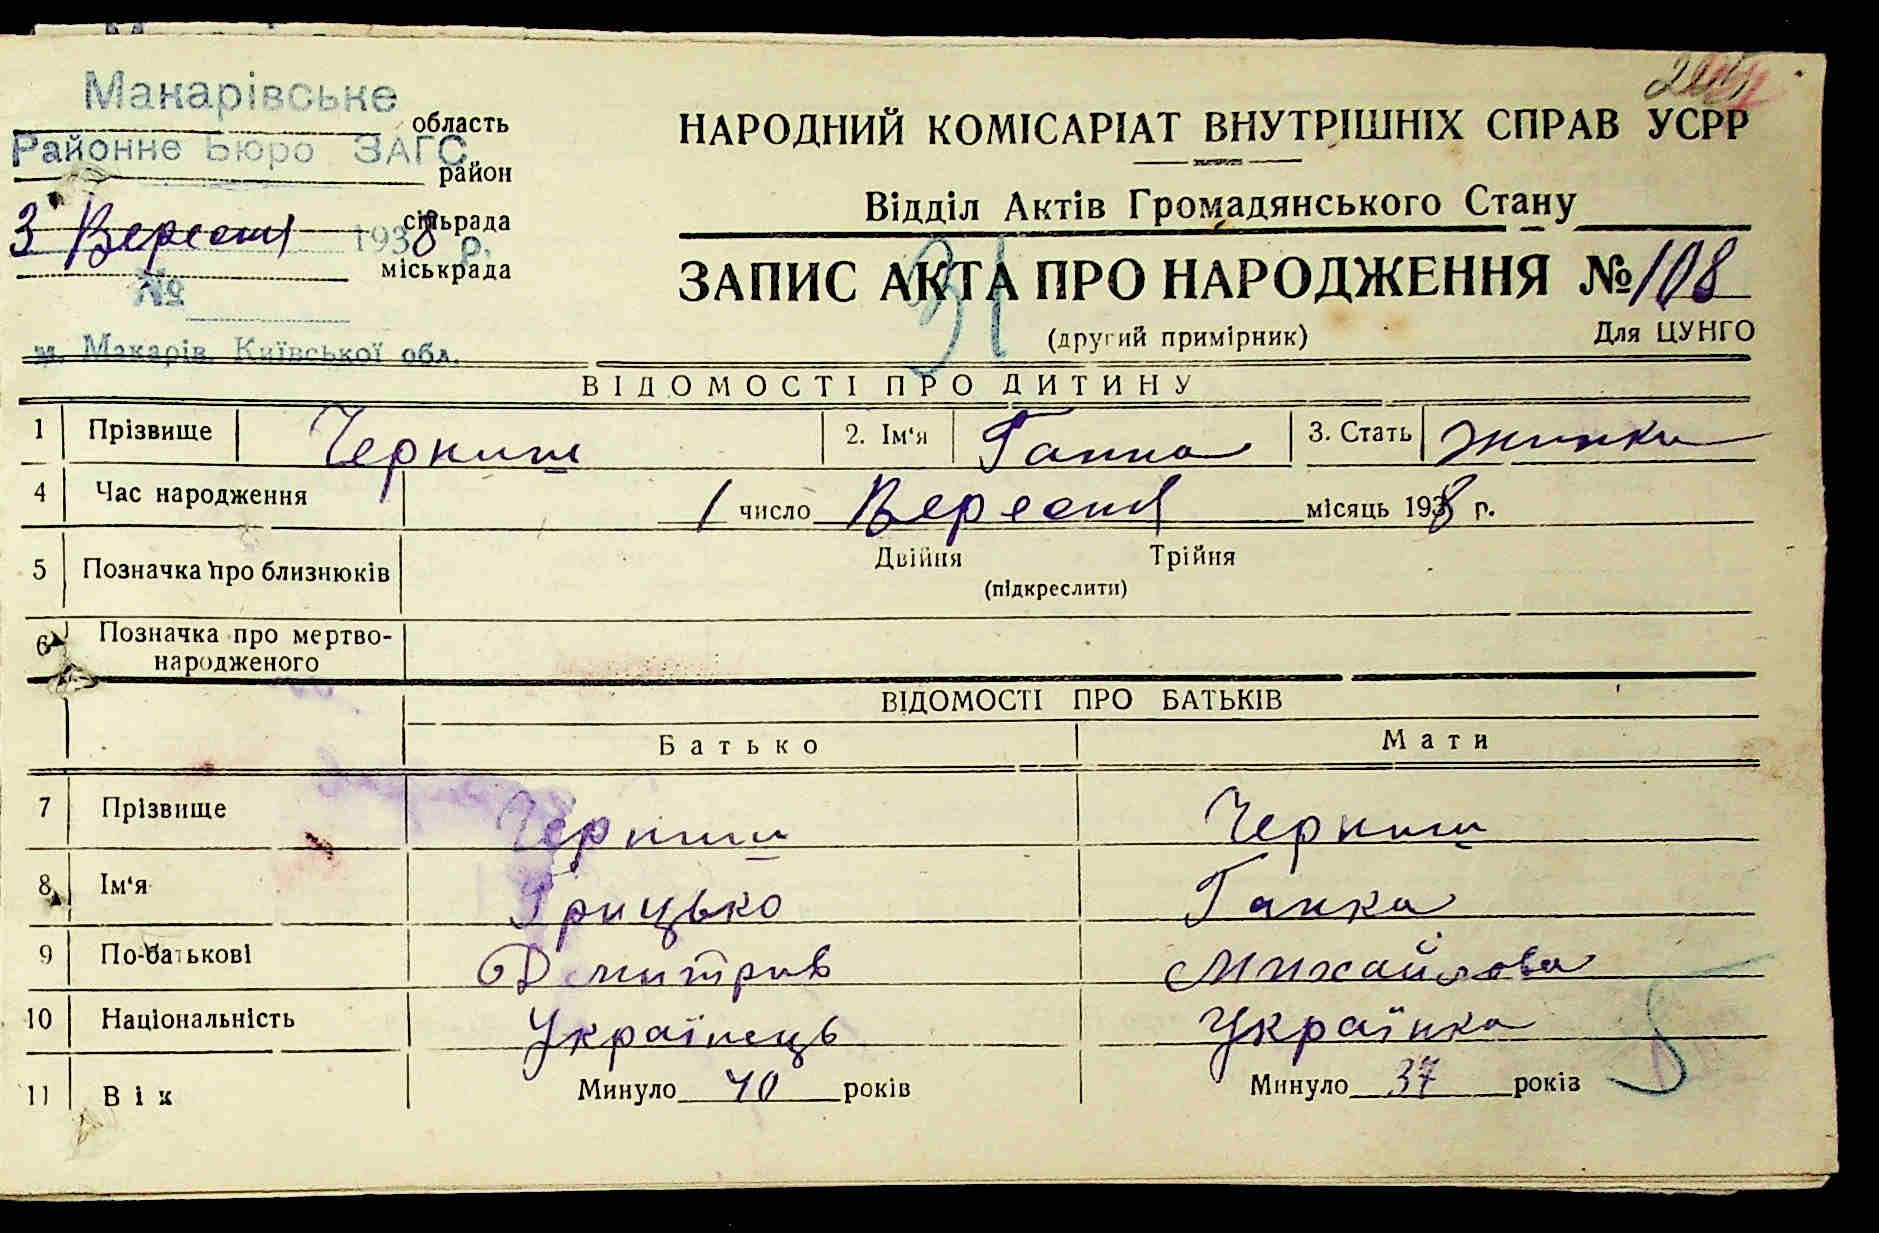 Макарівське
область
Районне Бюро ЗАГС
район
3 Вересня 1938 р.
сільрада
міськрада
№
м. Макарів, Київської обл.
НАРОДНИЙ КОМІСАРІАТ ВНУТРІШНІХ СПРАВ УСРР
Відділ Актів Громадянського Стану
31
ЗАПИС АКТА ПРО НАРОДЖЕННЯ № 108
(другий примірник) Для ЦУНГО
ВІДОМОСТІ ПРО ДИТИНУ
1 Прізвище Черниш 2. Ім‘я Ганна 3. Стать жинки
4 Час народження 1 число Вересня місяць 1938 р.
5 Позначка про близнюків Двійня Трійня
(підкреслити)
6 Позначка про мертво-
народженого
ВІДОМОСТІ ПРО БАТЬКІВ
Батько Мати
7 Прізвище Черниш Черниш
8 Ім‘я Грицько Ганка
9 По-батькові Дмитрив Михайлова
10 Національність Українець Українка
11 Вік Минуло 40 років Минуло 37 років